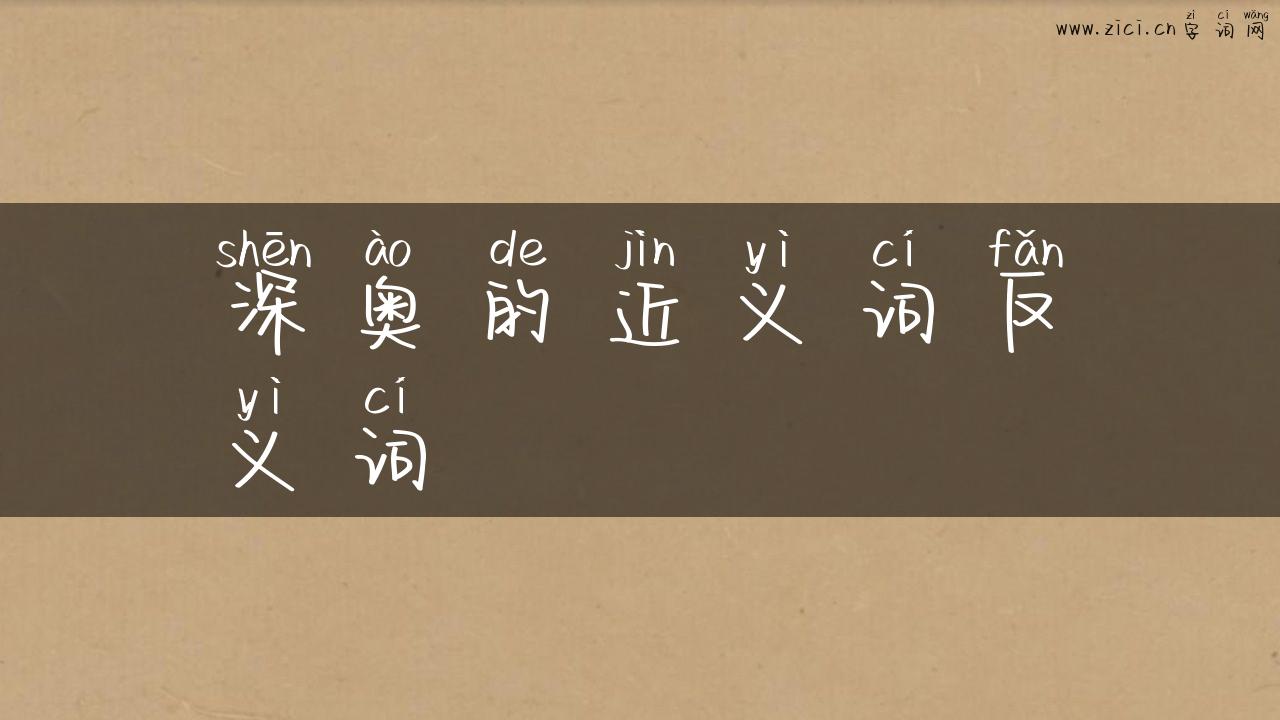 zì cí wǎng
www.zici.cn 字词网
shēn ào de jìn yì cí fǎn
深奥的近义词反
yì cí
义词